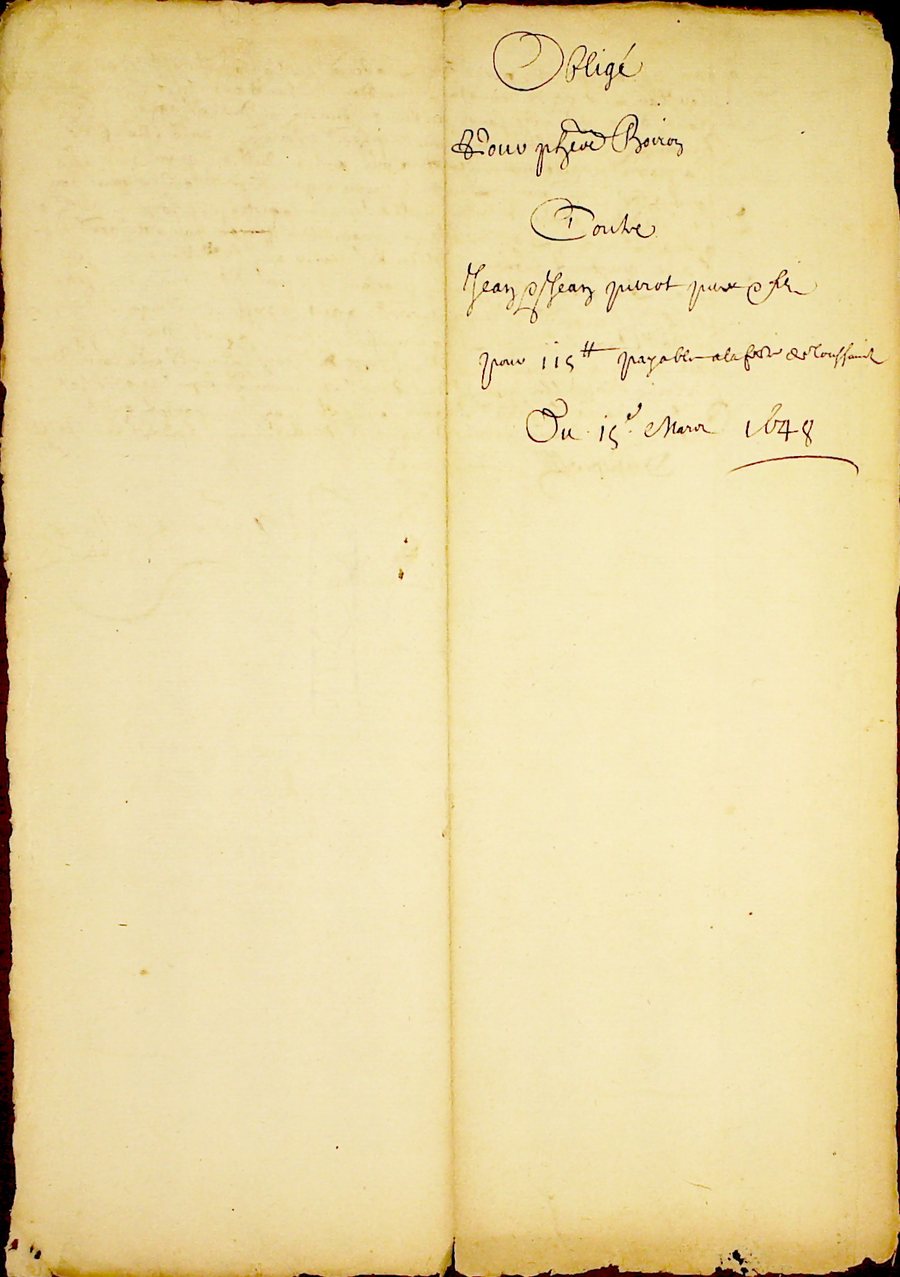 Obligé
Pour phe Boiron
Contre
Jean & Jean pierot pere & fils
pour 115 ₶ payable a la feste de toussaint
Du 15e Mars 1648